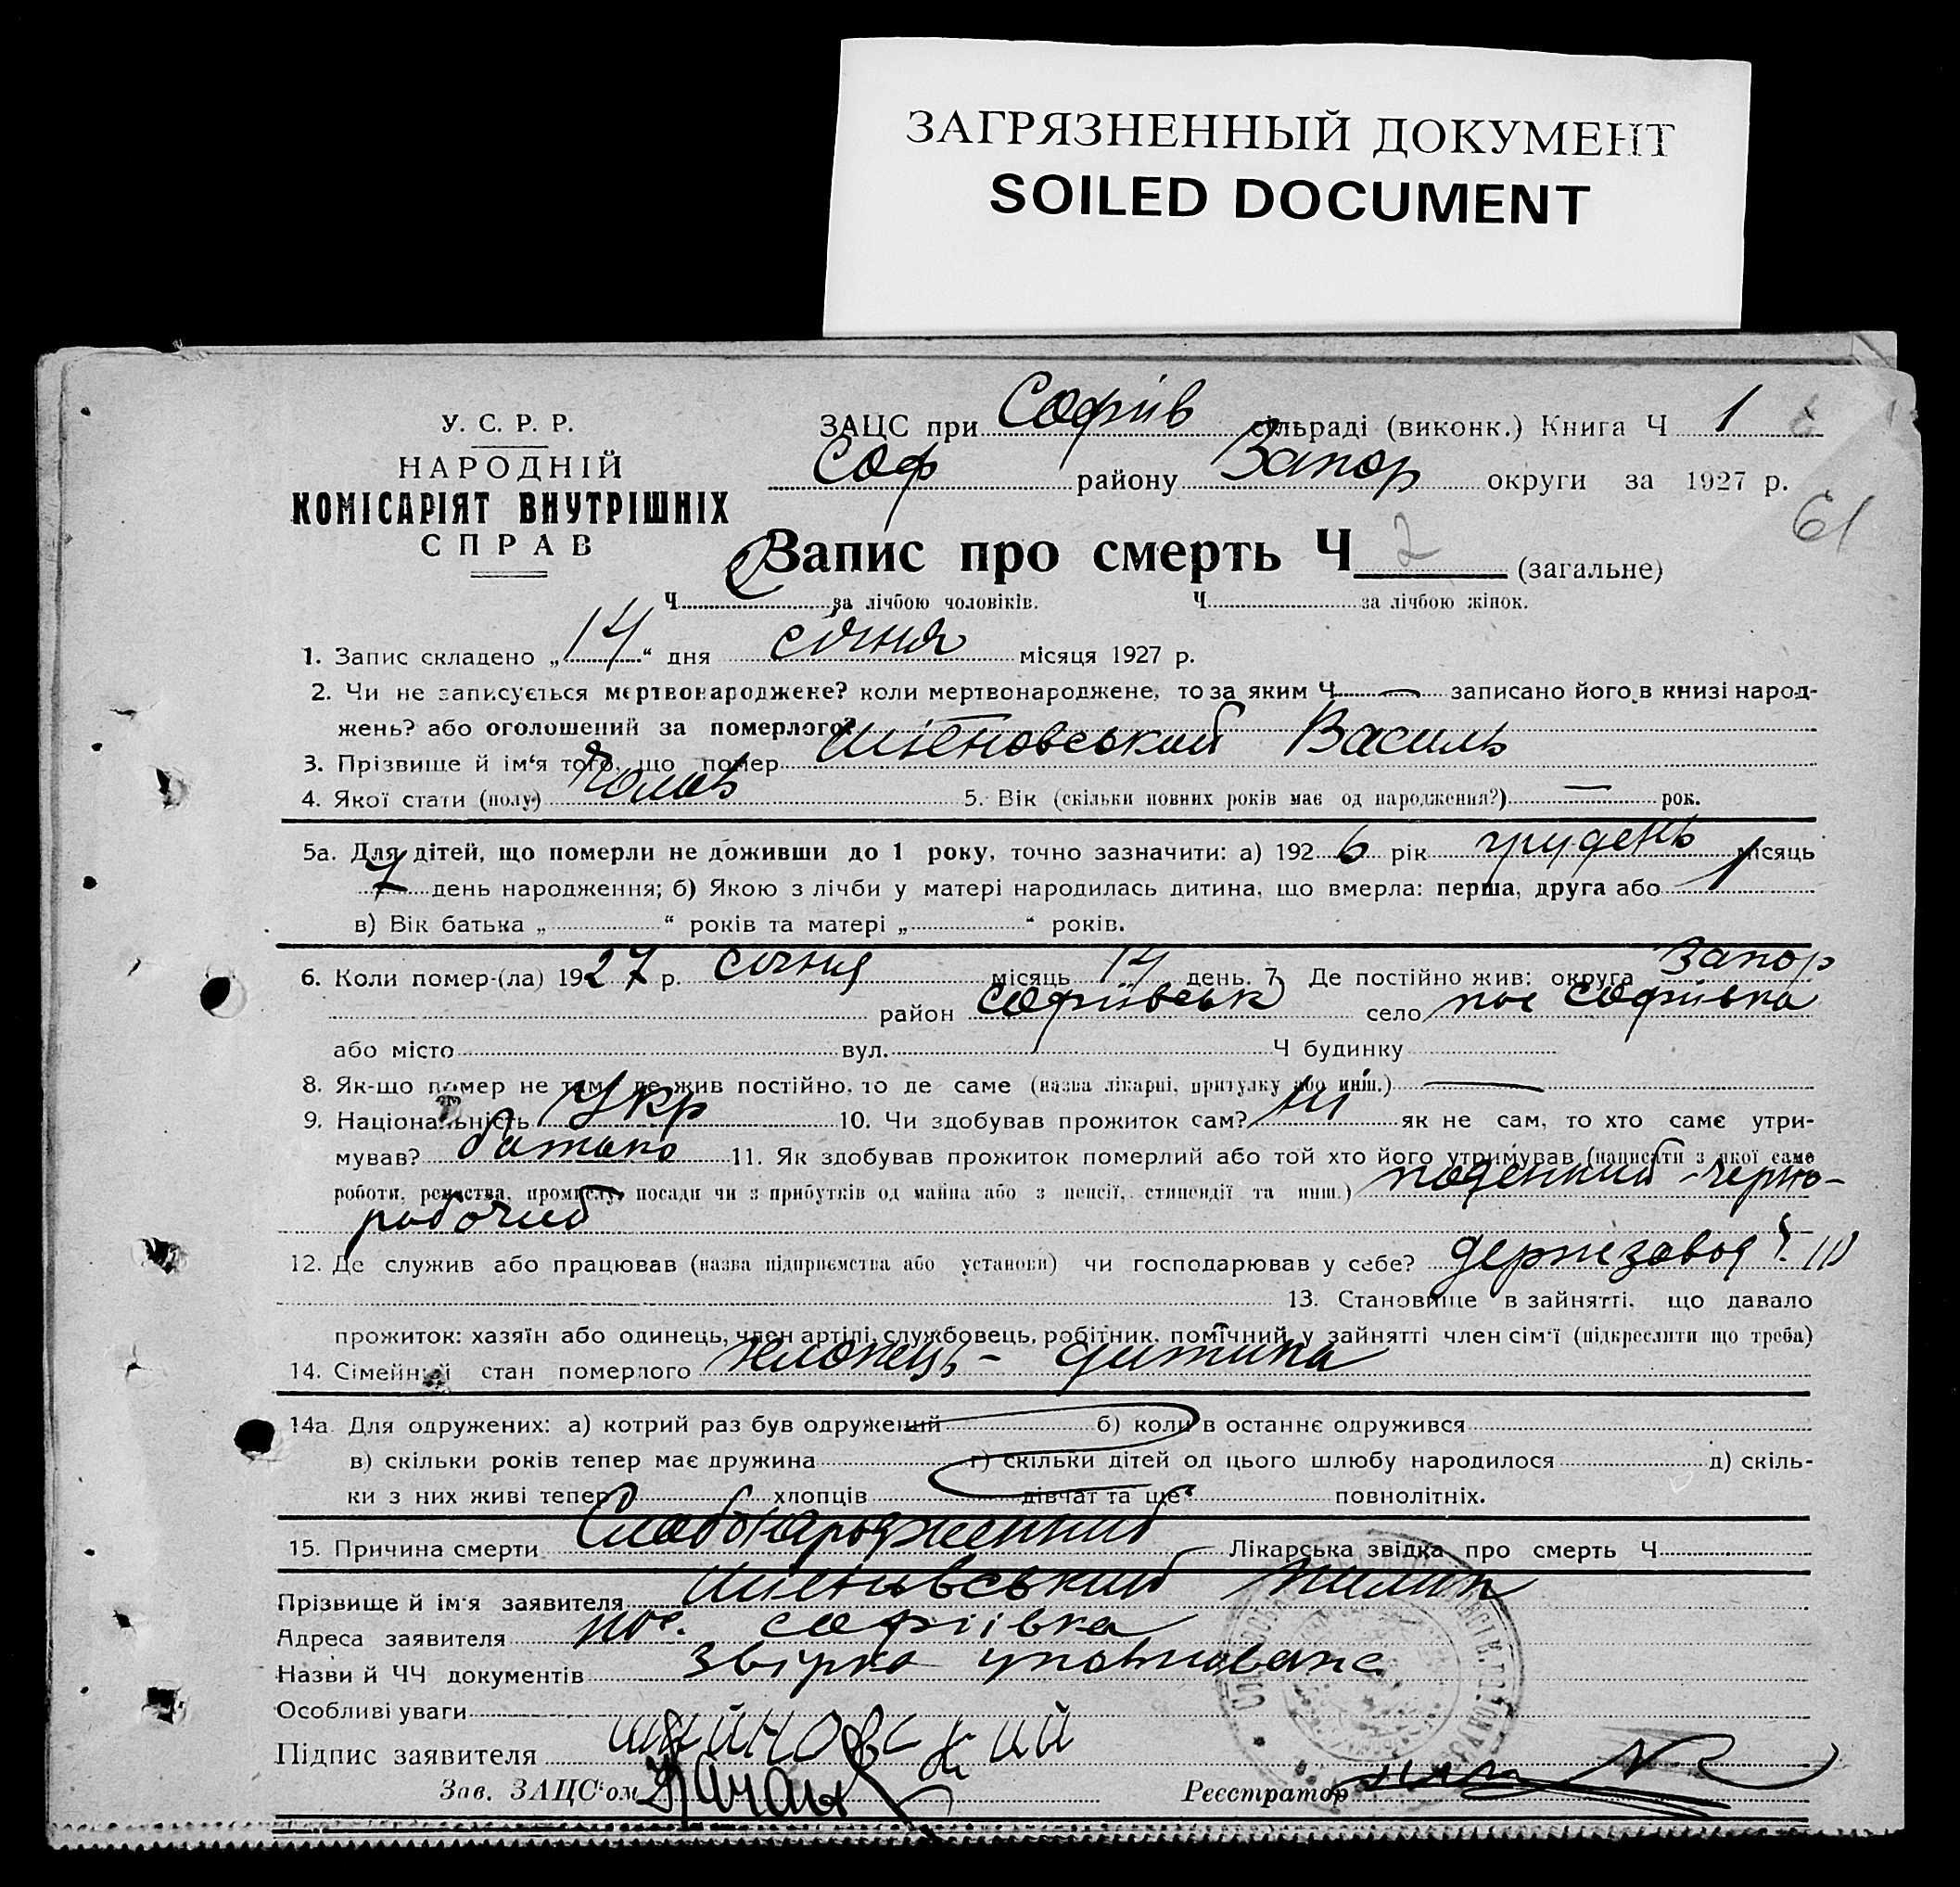 ЗАГРЯЗНЕННЫЙ ДОКУМЕНТ
SOILED DOCUMENT
У. С. Р. Р.
НАРОДНІЙ
КОМІСАРІЯТ ВНУТРІШНІХ
СПРАВ
ЗАЦС при Софіїв сільраді (виконк.) Книга Ч 1
Соф району Запор округи за 1927 р.
61
Запис про смерть Ч 2 (загальне)
Ч за лічбою чоловіків. Ч за лічбою жінок.
1. Запис складено „14“ дня січня місяця 1927 р.
2. Чи не записується мертвонароджене? коли мертвонароджене, то за яким Ч — записано його в книзі народ-
жень? або оголошений за померлого? —
3. Прізвище й ім‘я того, що помер Василь
4. Якої стати (полу) Чолов 5. Вік (скільки повних років має од народження?) — рок.
5а. Для дітей, що померли не доживши до 1 року, точно зазначити: а) 1926 рік грудень місяць
7 день народження; б) Якою з лічби у матері народилась дитина, що вмерла: перша, друга або 1
в) Вік батька „ “ років та матері „ “ років.
6. Коли помер-(ла) 1927 р. січня місяць 14 день. 7. Де постійно жив: округа Запор
район Софіївськ село пос Софіївка
або місто вул. Ч будинку
8. Як-що помер не там, де жив постійно, то де саме (назва лікарні, притулку або инш.) —
9. Національність Укр 10. Чи здобував прожиток сам? Ні як не сам, то хто саме утри-
мував? батько 11. Як здобував прожиток померлий або той хто його утримував (написати з якої саме
роботи, ремества, промислу, посади чи з прибутків од майна або з пенсії, стипендії та инш.) поденний - черно-
робочий
12. Де служив або працював (назва підприємства або установи) чи господарював у себе? держзавод
13. Становище в зайнятті, що давало
прожиток: хазяїн або одинець, член артілі, службовець, робітник, помічний у зайнятті член сім‘ї (підкреслити що треба)
14. Сімейний стан померлого хлопець - дитина
14а. Для одружених: а) котрий раз був одружений б) коли в останнє одружився
в) скільки років тепер має дружина г) скільки дітей од цього шлюбу народилося д) скіль-
ки з них живі тепер хлопців дівчат та ще повнолітніх.
15. Причина смерти Слабонарожденний Лікарська звідка про смерть Ч
Прізвище й ім‘я заявителя
Адреса заявителя пос. Софіївка
Назви й ЧЧ документів звірка
Особливі уваги
Підпис заявителя
Зав. ЗАЦС‘ом
Реєстратор